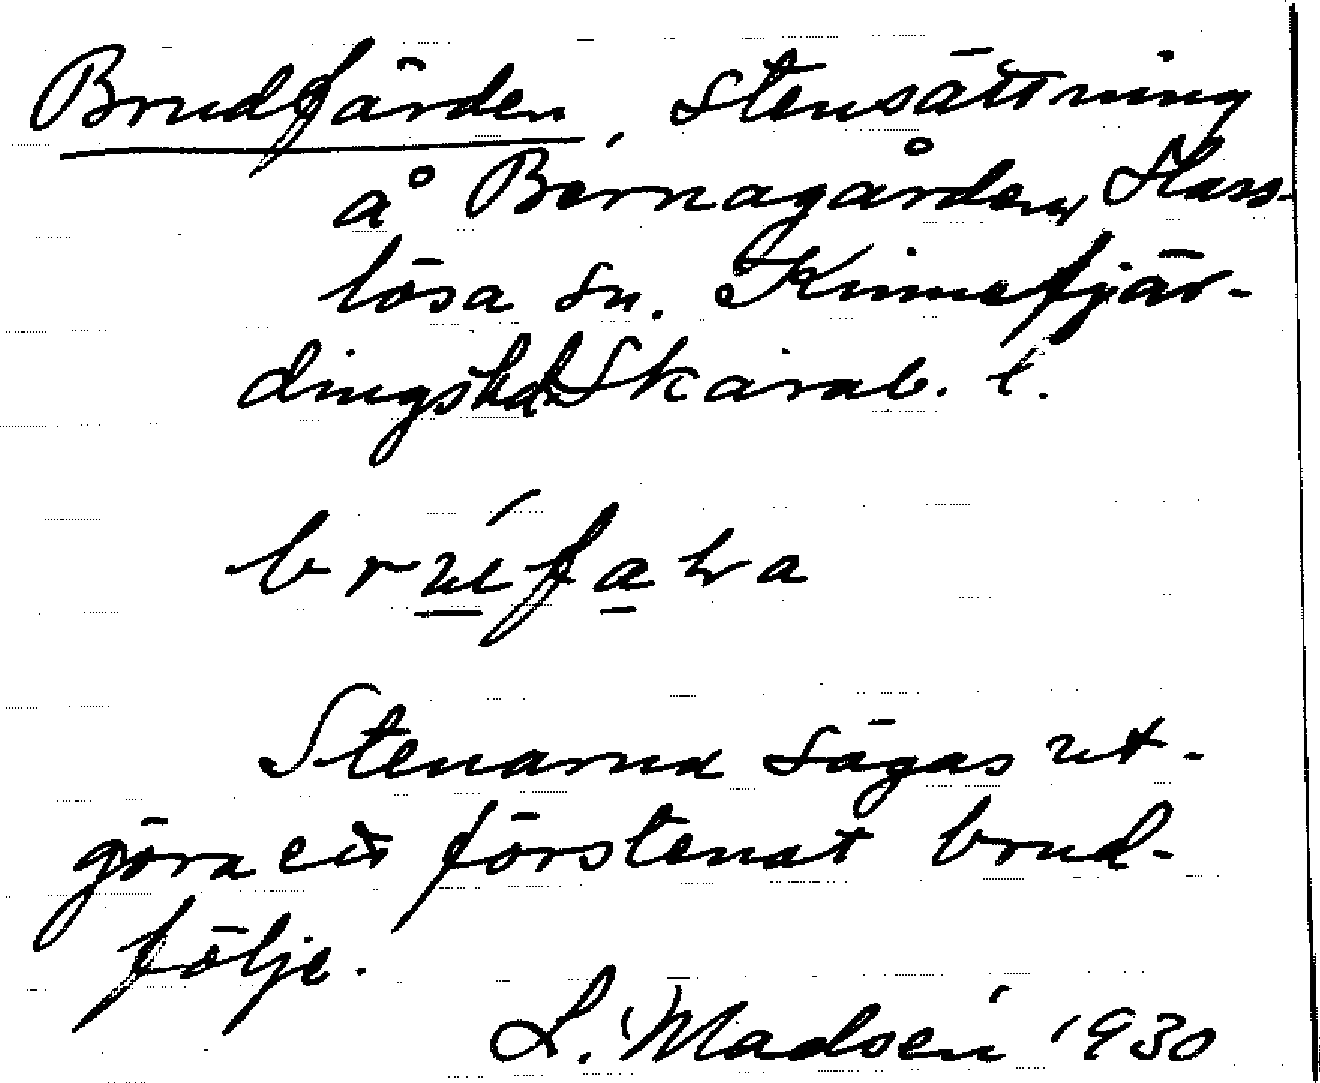 Brudfärden, stensättning
å Bernagården, Hass-
lösa sn. Kinnefjär-
dingshd. Skarab. l.
Stenarna sägas ut-
göra ett förstenat brud-
följe.
L. Madsén 1930